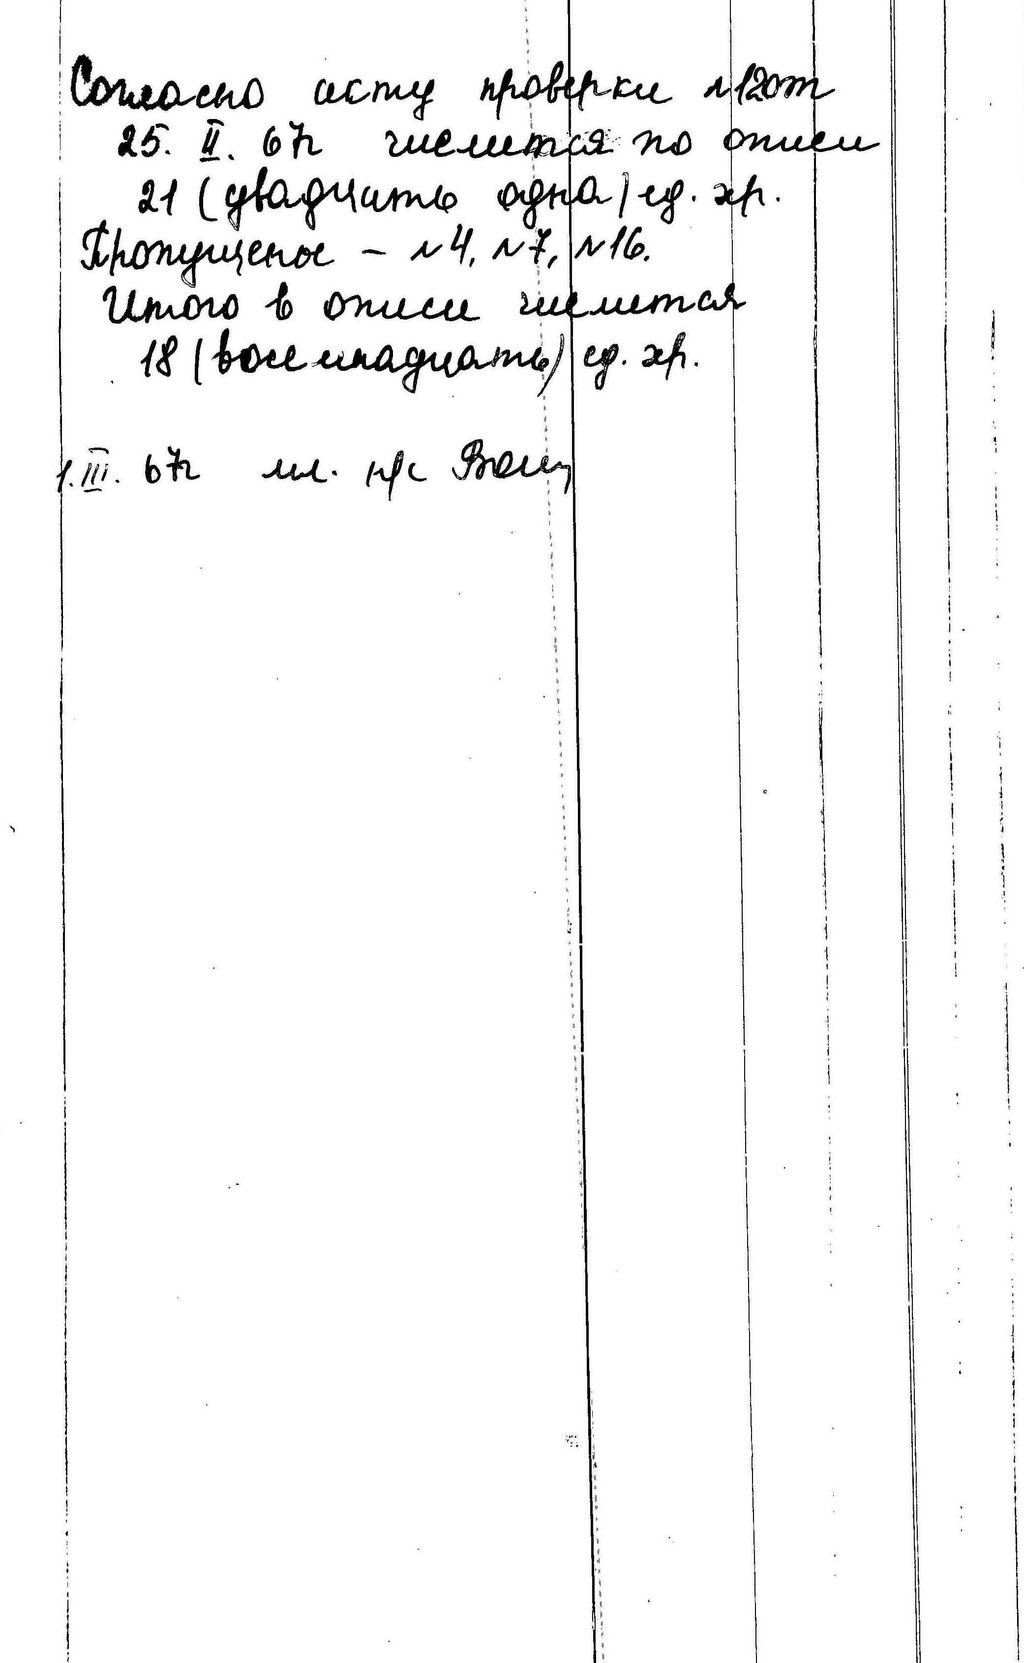 Согласно акту проверки №12 от
25. II. 67г числится по описи
21 (двадцать одна) ед. хр.
Пропущены – №4, №7, №16.
Итого в описи числится
18 (восемнадцать) ед. хр.
1. III. 67г мл. н/с